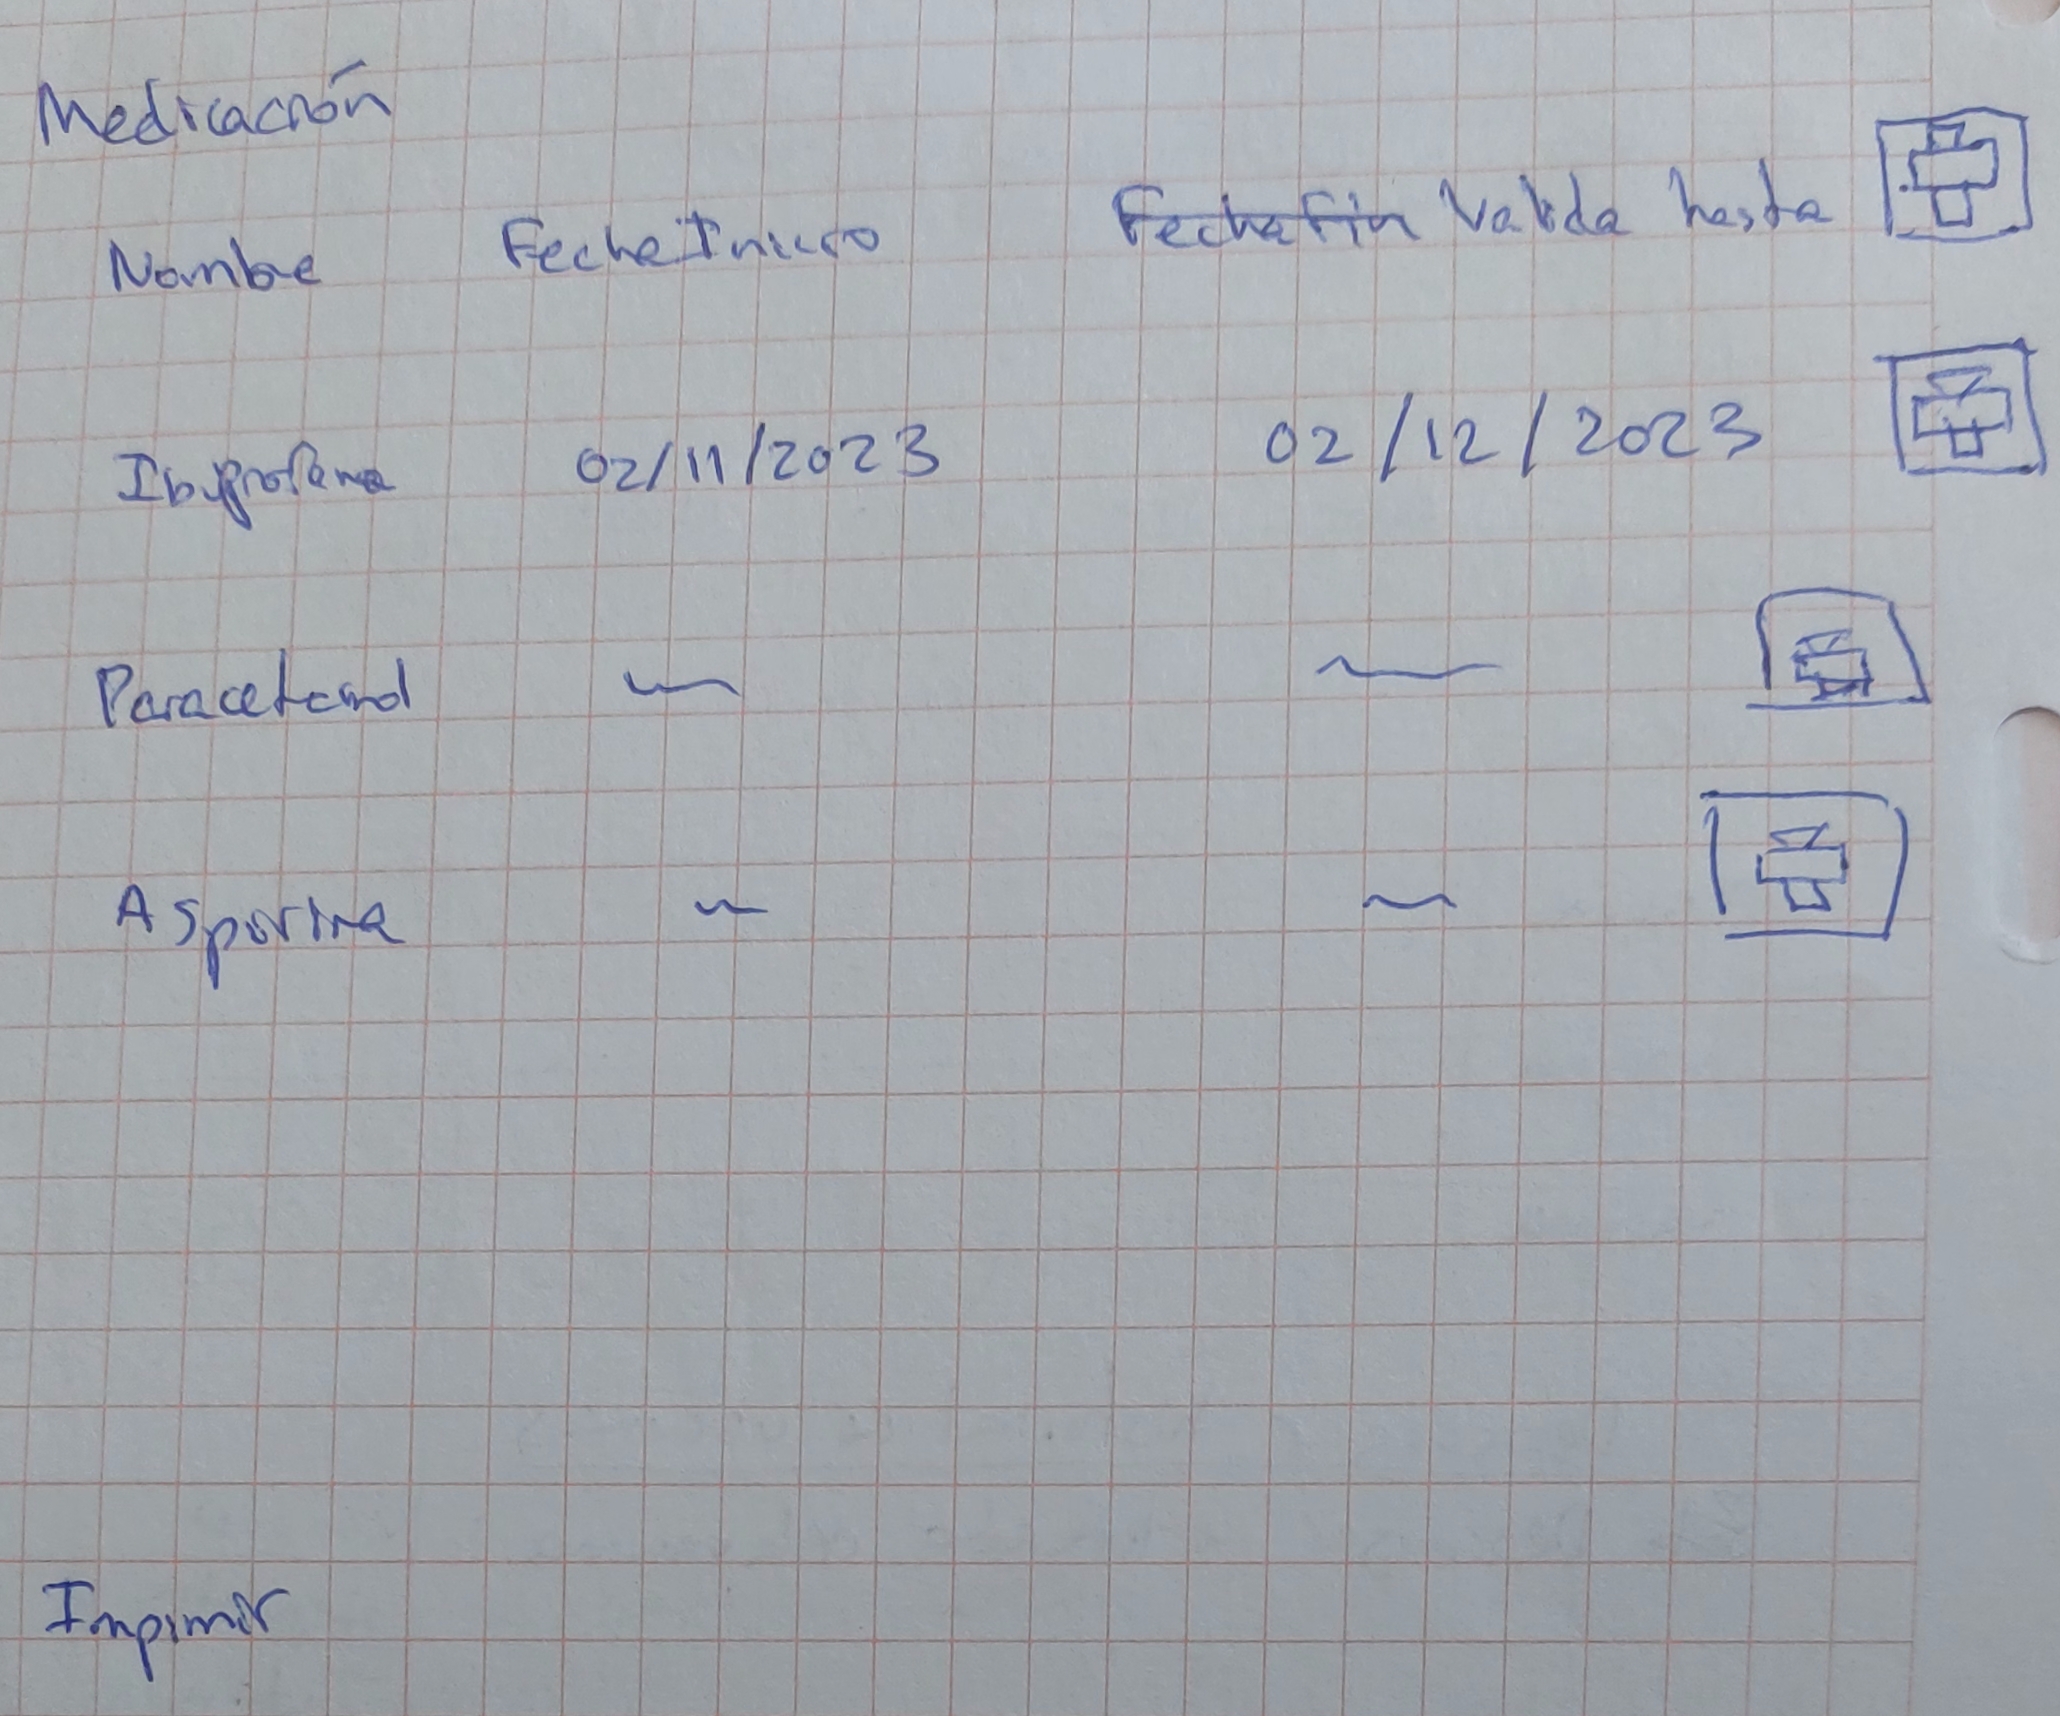 Medicación
Nombre Fecha Inicio Fecha Fin Valida hasta
Ibuprofeno 02/11/2023 02/12/2023
Paracetamol
Aspirina
Impimir